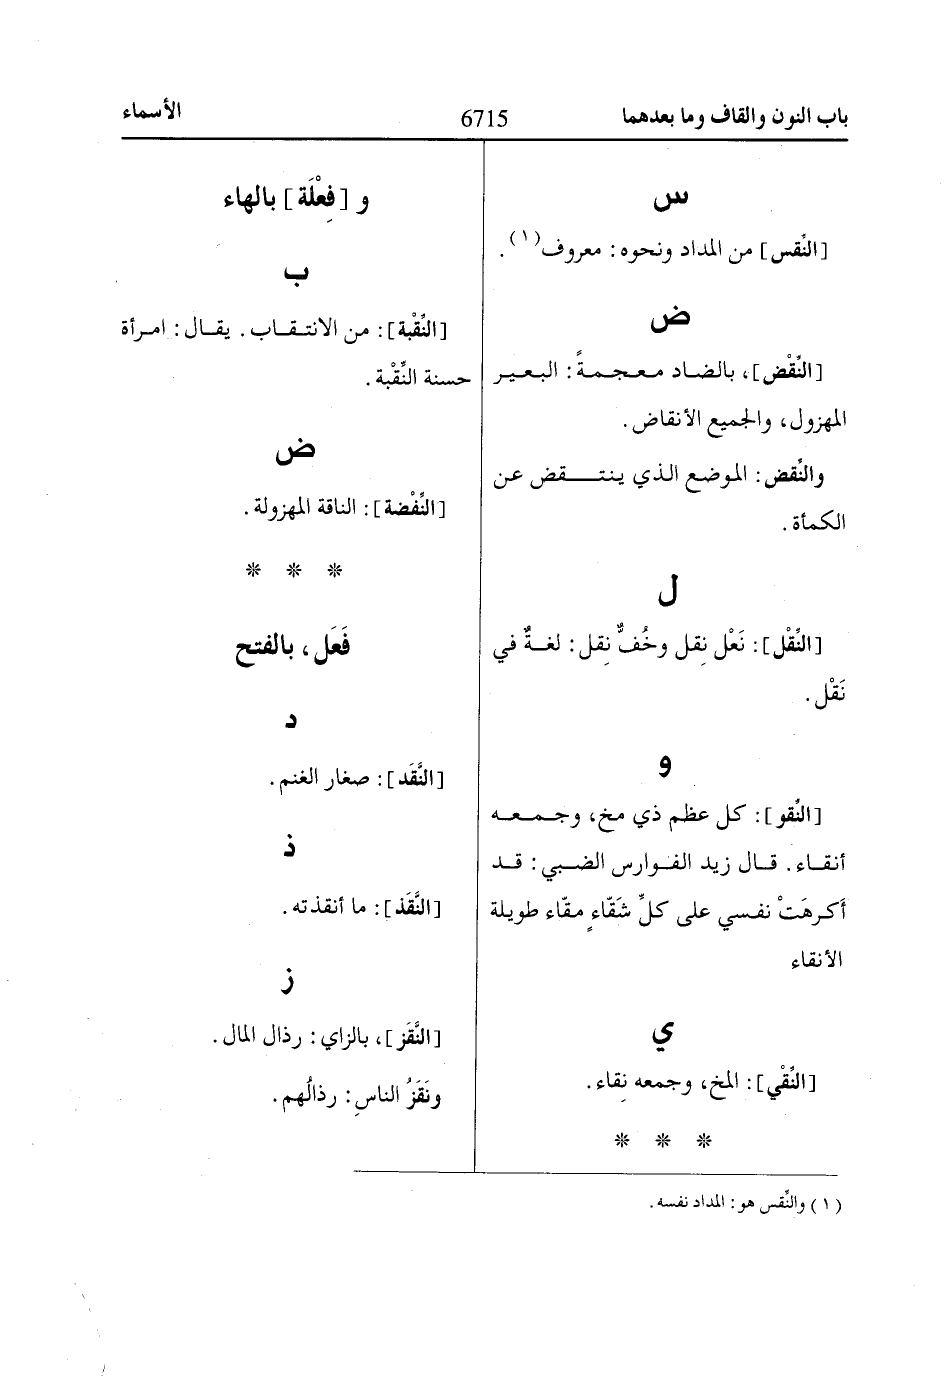 باب النون والقاف وما بعدهما 6715 الأسماء
س
[النِّقس] من المداد ونحوه: معروف(١).
ض
[النِّقْض]، بالضاد معجمةً: البعير
المهزول، والجميع الأنقاض.
والنِّقض: الموضع الذي ينتقض عن
الكمأة.
ل
[النِّقْل]: نَعْل نِقل وخُفٌّ نِقل: لغةٌ في
نَقْل.
و
[النِّقو]: كل عظم ذي مخ، وجمعه
أنقاء. قال زيد الفوارس الضبي: قد
أكرهَتْ نفسي على كلِّ شَقّاءٍ مقّاء طويلة
الأنقاء
ي
[النِّقْي]: المخ، وجمعه نِقاء.
* * *
و [فِعْلَة] بالهاء
ب
[النِّقْبة]: من الانتقاب. يقال: امرأة
حسنة النِّقْبة.
ض
[النِّقْضة]: الناقة المهزولة.
* * *
فَعَل، بالفتح
د
[النَّقَد]: صغار الغنم.
ذ
[النَّقَذ]: ما أنقذته.
ز
[النَّقَز]، بالزاي: رذال المال.
ونَقَزُ الناسِ: رذالُهم.
(١) والنِّقس هو: المداد نفسه.